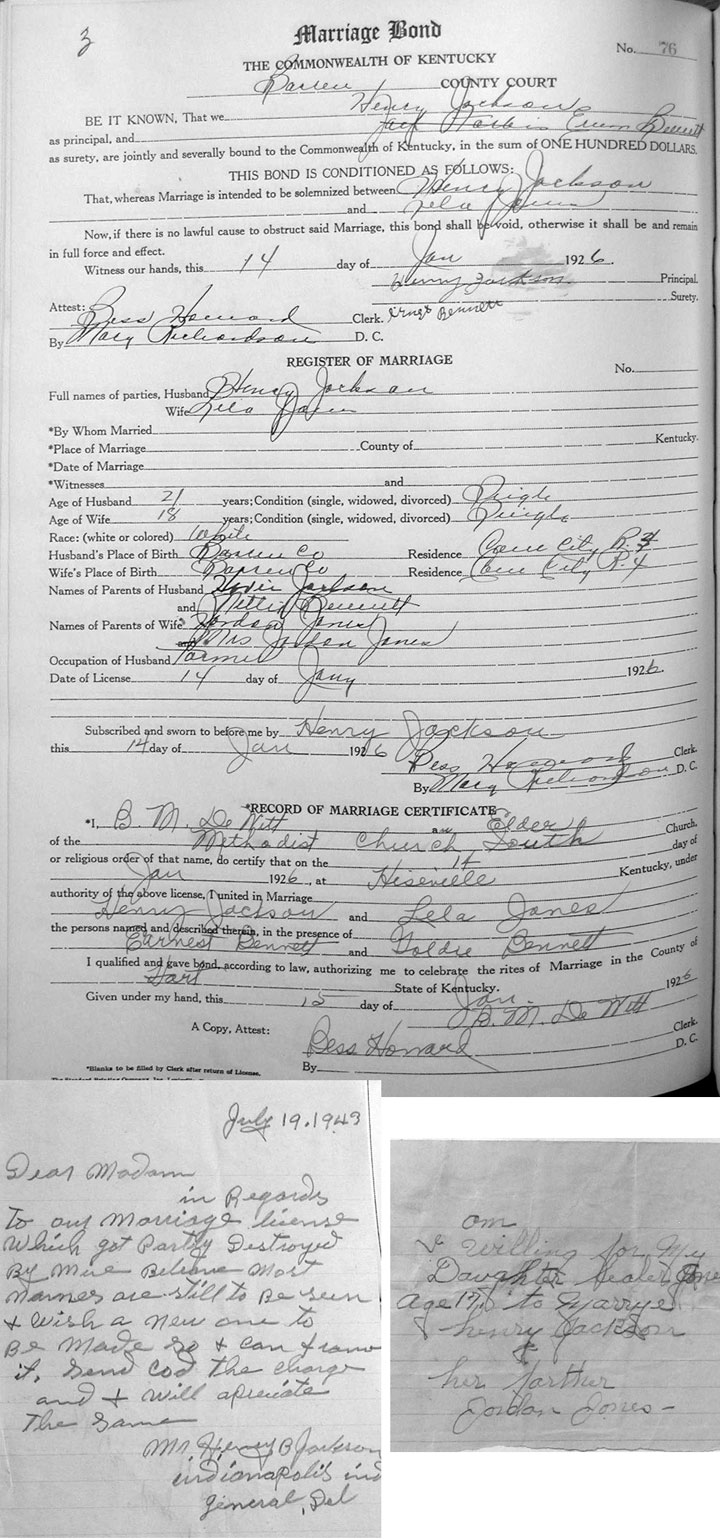 3
Marriage Bond
No. 76
THE COMMONWEALTH OF KENTUCKY
Barren COUNTY COURT
BE IT KNOWN, That we Henry Jackson
as principal, and Bennett
as surety, are jointly and severally bound to the Commonwealth of Kentucky, in the sum of ONE HUNDRED DOLLARS.
THIS BOND IS CONDITIONED AS FOLLOWS:
That, whereas Marriage is intended to be solemnized between Henry Jackson
and Lela Jones
Now, if there is no lawful cause to obstruct said Marriage, this bond shall be void, otherwise it shall be and remain
in full force and effect.
Witness our hands, this 14 day of Jan 1926.
Henry Jackson Principal.
Surety.
Attest:
Bess Howard Clerk. Ernest Bennett
By Mary Richardson D. C.
REGISTER OF MARRIAGE
No.
Full names of parties, Husband Henry Jackson
Wife Lela Jones
*By Whom Married
*Place of Marriage County of Kentucky.
*Date of Marriage
*Witnesses and
Age of Husband 21 years; Condition (single, widowed, divorced) Single
Age of Wife 18 years; Condition (single, widowed, divorced) Single
Race: (white or colored) White
Husband's Place of Birth Barren Co Residence Cave City R.
Wife's Place of Birth Barren Co Residence Cave City R.4
Names of Parents of Husband Jackson
and Nettie Bennett
Names of Parents of Wife Jordon Jones
and Mrs Jordon Jones
Occupation of Husband Farmer
Date of License 14 day of Jany 1926.
Subscribed and sworn to before me by Henry Jackson
this 14 day of Jan 1926
Bess Howard Clerk.
By Mary Richardson D. C.
*RECORD OF MARRIAGE CERTIFICATE
*I, B. M. De Witt an Elder
of the Methodist Church South Church,
or religious order of that name, do certify that on the 14 day of
Jan 1926, at Hiseville Kentucky, under
authority of the above license, I united in Marriage
Henry Jackson and Lela Jones
the persons named and described therein, in the presence of
Earnest Bennett and Goldie Bennett
I qualified and gave bond, according to law, authorizing me to celebrate the rites of Marriage in the County of
Hart State of Kentucky.
Given under my hand, this 15 day of Jan. 1926
B. M. De Witt
A Copy, Attest: Bess Howard Clerk.
By D. C.
*Blanks to be filled by Clerk after return of License.
July 19.1943
Dear Madam
in Regards
To our Marriage license
Which got Partly Destroyed
By Mice Believe Most
Names are still to Be seen
& Wish a New one to
Be Made so I can frame
it, Send Cod the charge
and I will apreciate
The Same
Mr Henry B Jackson
indianapolis ind
general, Del
om
I Willing for My
Daughter Jones
Age 17 to Marrye
henry Jackson
her farther
Jordan Jones -